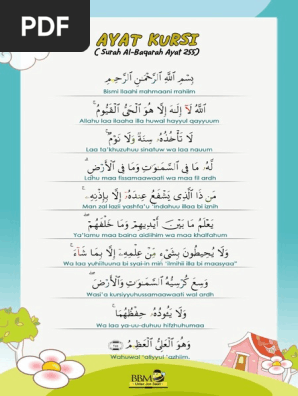 PDF
AYAT KURSI
( Surah Al-Baqarah Ayat 255)
بِسْمِ اللَّهِ الرَّحْمَٰنِ الرَّحِيمِ
Bismi llaahi rrahmaani rrahiim
اللَّهُ لَآ إِلَٰهَ إِلَّا هُوَ الْحَىُّ الْقَيُّومُ ۚ
Allahu laa ilaaha illa huwal hayyul qayyuum
لَا تَأْخُذُهُۥ سِنَةٌ وَلَا نَوْمٌ ۚ
Laa ta'khuzuhuu sinatuw wa laa nauum
لَّهُۥ مَا فِى السَّمَٰوَٰتِ وَمَا فِى الْأَرْضِ ۗ
Lahu maa fissamaawaati wa maa fil ardh
مَن ذَا الَّذِى يَشْفَعُ عِندَهُۥٓ إِلَّا بِإِذْنِهِۦ ۚ
Man zal lazii yashfa'u 'indahuu illaa bi iznih
يَعْلَمُ مَا بَيْنَ أَيْدِيهِمْ وَمَا خَلْفَهُمْ ۖ
Ya'lamu maa baina aidiihim wa maa khalfahum
وَلَا يُحِيطُونَ بِشَىْءٍ مِّنْ عِلْمِهِۦٓ إِلَّا بِمَا شَآءَ ۚ
Wa laa yuhiituuna bi syai-in min 'ilmihii illa bi maasyaa"
وَسِعَ كُرْسِيُّهُ السَّمَٰوَٰتِ وَالْأَرْضَ ۖ
Wasi'a kursiyyuhussamaawaati wal ardh
وَلَا يَـُٔودُهُۥ حِفْظُهُمَا ۚ
Wa laa ya-uu-duhuu hifzhuhumaa
وَهُوَ الْعَلِىُّ الْعَظِيمُ
Wahuwal 'aliyyul 'azhiim.
BBM